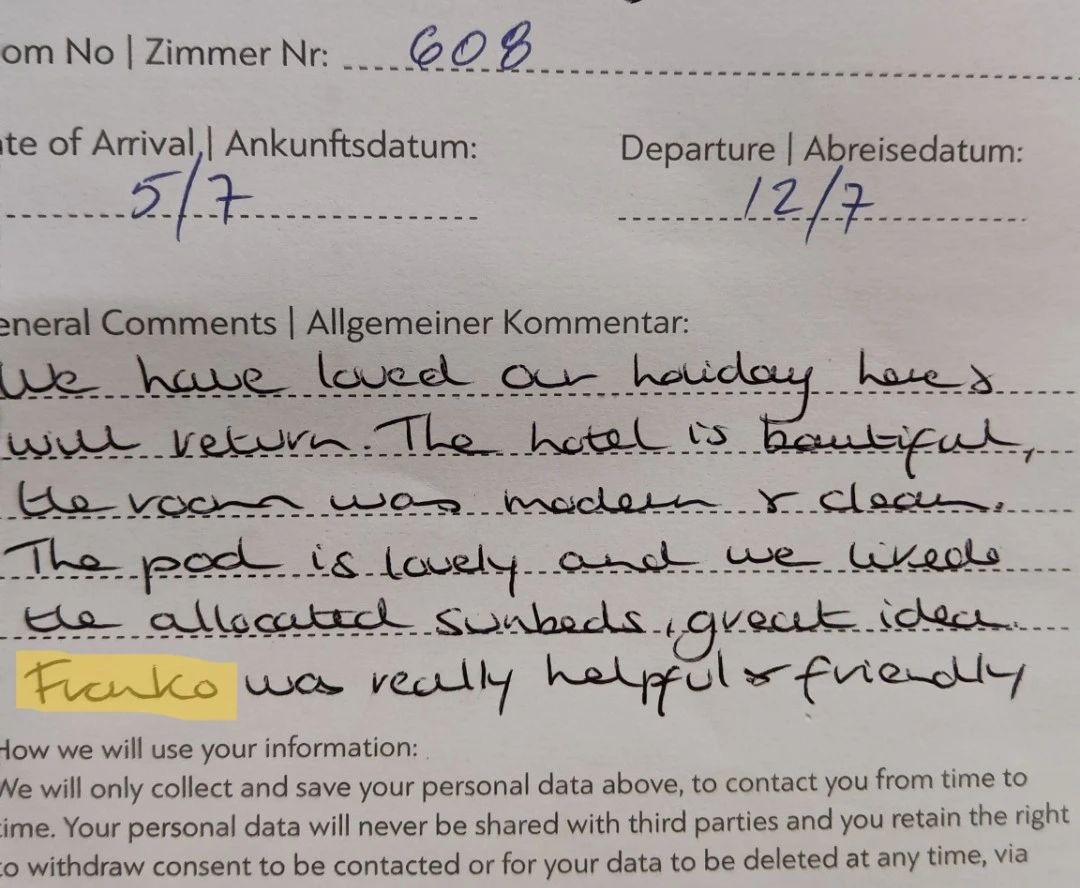 om No | Zimmer Nr: 608
te of Arrival | Ankunftsdatum: Departure | Abreisedatum:
5/7 12/7
eneral Comments | Allgemeiner Kommentar:
We have loved our holiday here &
will return. The hotel is beautiful,
the room was modern & clean.
The pool is lovely and we liked
the allocated sunbeds, great idea.
Franko was really helpful & friendly
How we will use your information:
We will only collect and save your personal data above, to contact you from time to
time. Your personal data will never be shared with third parties and you retain the right
to withdraw consent to be contacted or for your data to be deleted at any time, via